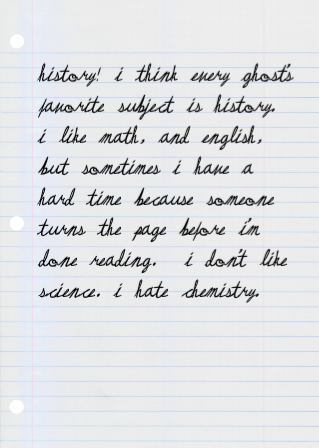 history! i think every ghost's
favorite subject is history.
i like math, and english,
but sometimes i have a
hard time because someone
turns the page before i'm
done reading. i don't like
science. i hate chemistry.